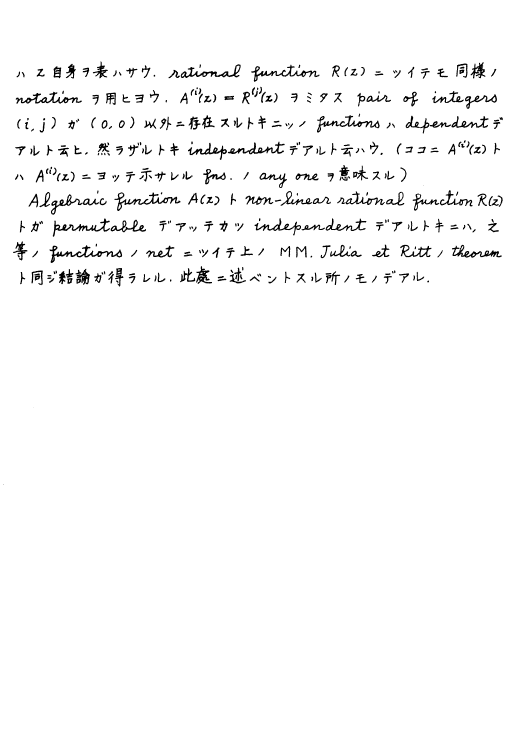 ハ z 自身ヲ表ハサウ. rational function R(z) ニツイテモ同様ノ
notation ヲ用ヒヨウ. A⁽ⁱ⁾(z) = R⁽ʲ⁾(z) ヲミタス pair of integers
(i, j) ガ (0, 0) 以外ニ存在スルトキニッノ functions ハ dependent デ
アルト云ヒ. 然ラザルトキ independent デアルト云ハウ. (ココニ A⁽ⁱ⁾(z) ト
ハ A⁽ⁱ⁾(z) ニヨッテ示サレル fns. ノ any one ヲ意味スル)
Algebraic function A(z) ト non-linear rational function R(z)
トガ permutable デアッテカツ independent デアルトキニハ, 之
等ノ functions ノ net ニツイテ上ノ MM. Julia et Ritt ノ theorem
ト同ジ結論ガ得ラレル. 此處ニ述ベントスル所ノモノデアル.